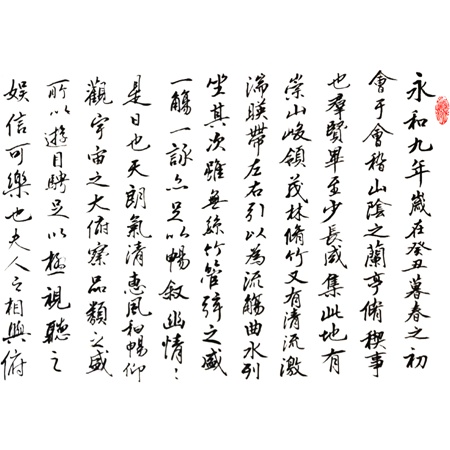 永和九年歲在癸丑暮春之初
會于會稽山陰之蘭亭脩稧事
也羣賢畢至少長咸集此地有
崇山峻領茂林脩竹又有清流激
湍暎帶左右引以為流觴曲水列
坐其次雖無絲竹管弦之盛
一觴一詠亦足以暢敘幽情
是日也天朗氣清惠風和暢仰
觀宇宙之大俯察品類之盛
所以遊目騁足以極視聽之
娛信可樂也夫人之相與俯